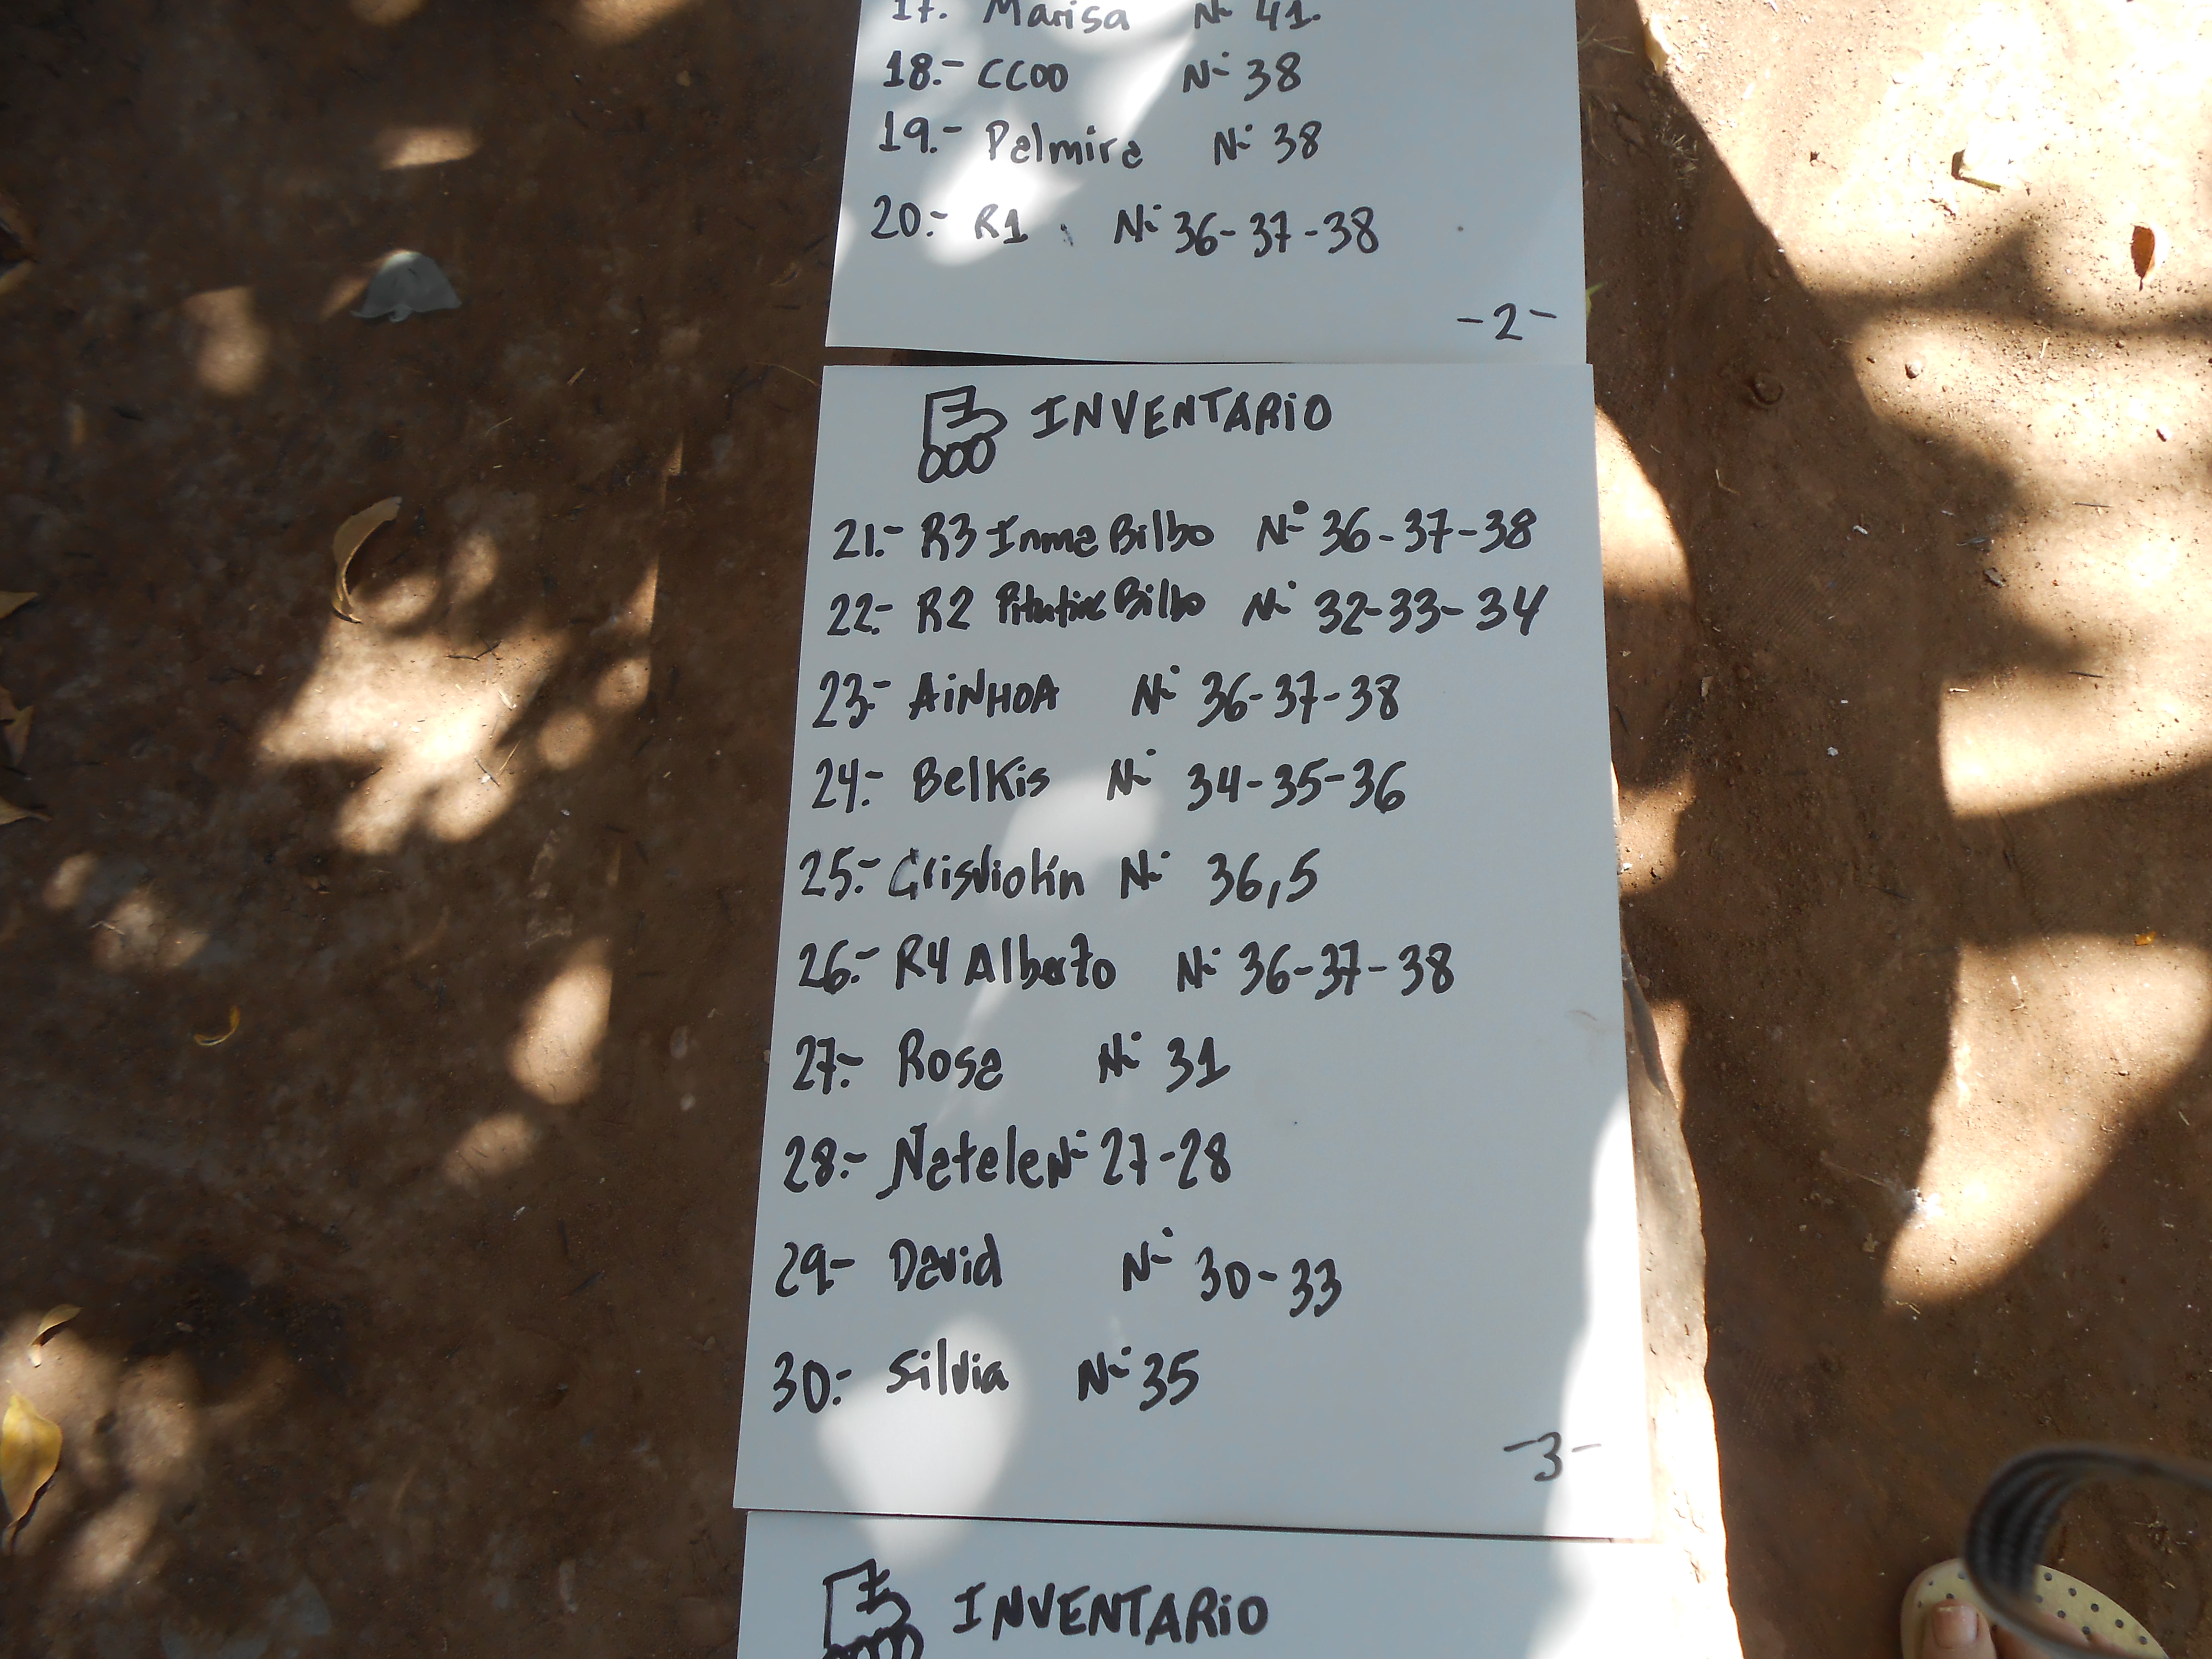 17. Marisa Nº 41.
18.- CCOO Nº 38
19.- Palmira Nº 38
20.- R1 Nº 36-37-38
-2-
INVENTARIO
21.- R3 Inma Bilbo Nº 36-37-38
22.- R2 Bilbo Nº 32-33-34
23.- AiNHOA Nº 36-37-38
24.- Belkis Nº 34-35-36
25.- Nº 36,5
26.- R4 Alberto Nº 36-37-38
27.- Rosa Nº 31
28.- Natale Nº 27-28
29.- David Nº 30-33
30.- Silvia Nº 35
-3-
INVENTARIO